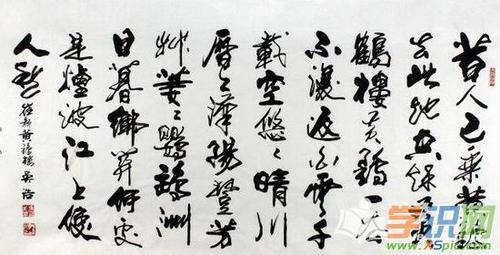 昔人已乘黄鶴
去此地空餘黄
鶴樓黄鶴一去
不復返白雲千
載空悠々晴川
歷々漢陽樹芳
艸萋々鸚鵡洲
日暮鄉關何處
是煙波江上使
人愁
黄鶴樓
学识网
www.XSpic.com